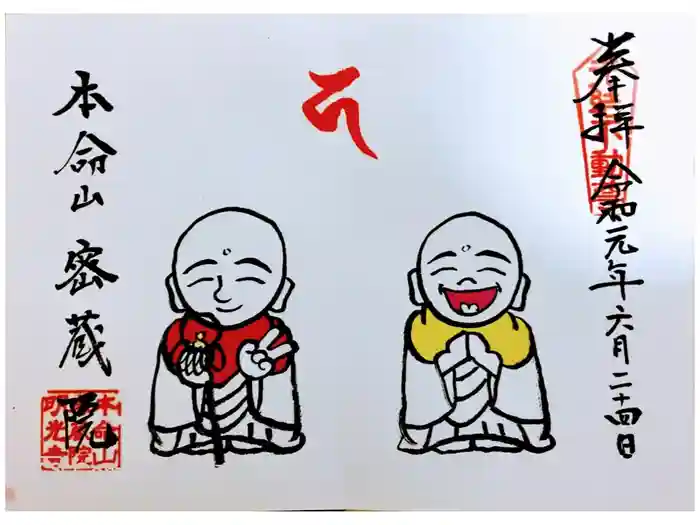 奉拝 令和元年六月二十四日
本命山 密蔵院